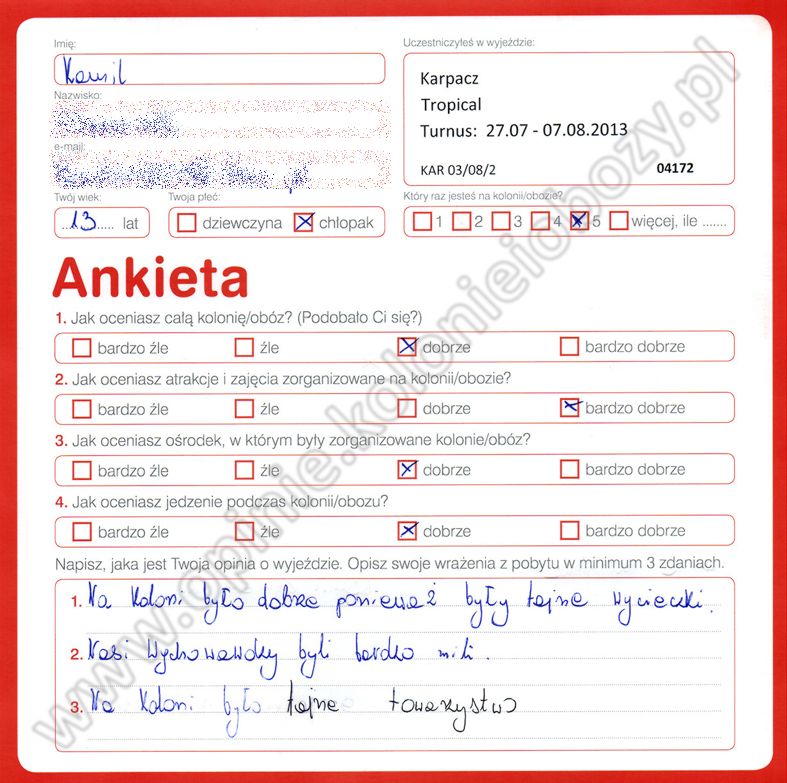 Imię:
Kamil
Nazwisko:
e-mail:
Twój wiek:
13 lat
Twoja płeć:
dziewczyna chłopak
Uczestniczyłeś w wyjeździe:
Karpacz
Tropical
Turnus: 27.07 - 07.08.2013
KAR 03/08/2 04172
Który raz jesteś na kolonii/obozie?
1 2 3 4 5 więcej, ile .......
Ankieta
1. Jak oceniasz całą kolonię/obóz? (Podobało Ci się?)
bardzo źle źle dobrze bardzo dobrze
2. Jak oceniasz atrakcje i zajęcia zorganizowane na kolonii/obozie?
bardzo źle źle dobrze bardzo dobrze
3. Jak oceniasz ośrodek, w którym były zorganizowane kolonie/obóz?
bardzo źle źle dobrze bardzo dobrze
4. Jak oceniasz jedzenie podczas kolonii/obozu?
bardzo źle źle dobrze bardzo dobrze
Napisz, jaka jest Twoja opinia o wyjeździe. Opisz swoje wrażenia z pobytu w minimum 3 zdaniach.
1. Na koloni było dobrze ponieważ były fajne wycieczki.
2. Nasi wychowawcy byli bardzo mili.
3. Na koloni było fajne towarzystwo
www.opinie.kolonieiobozy.pl